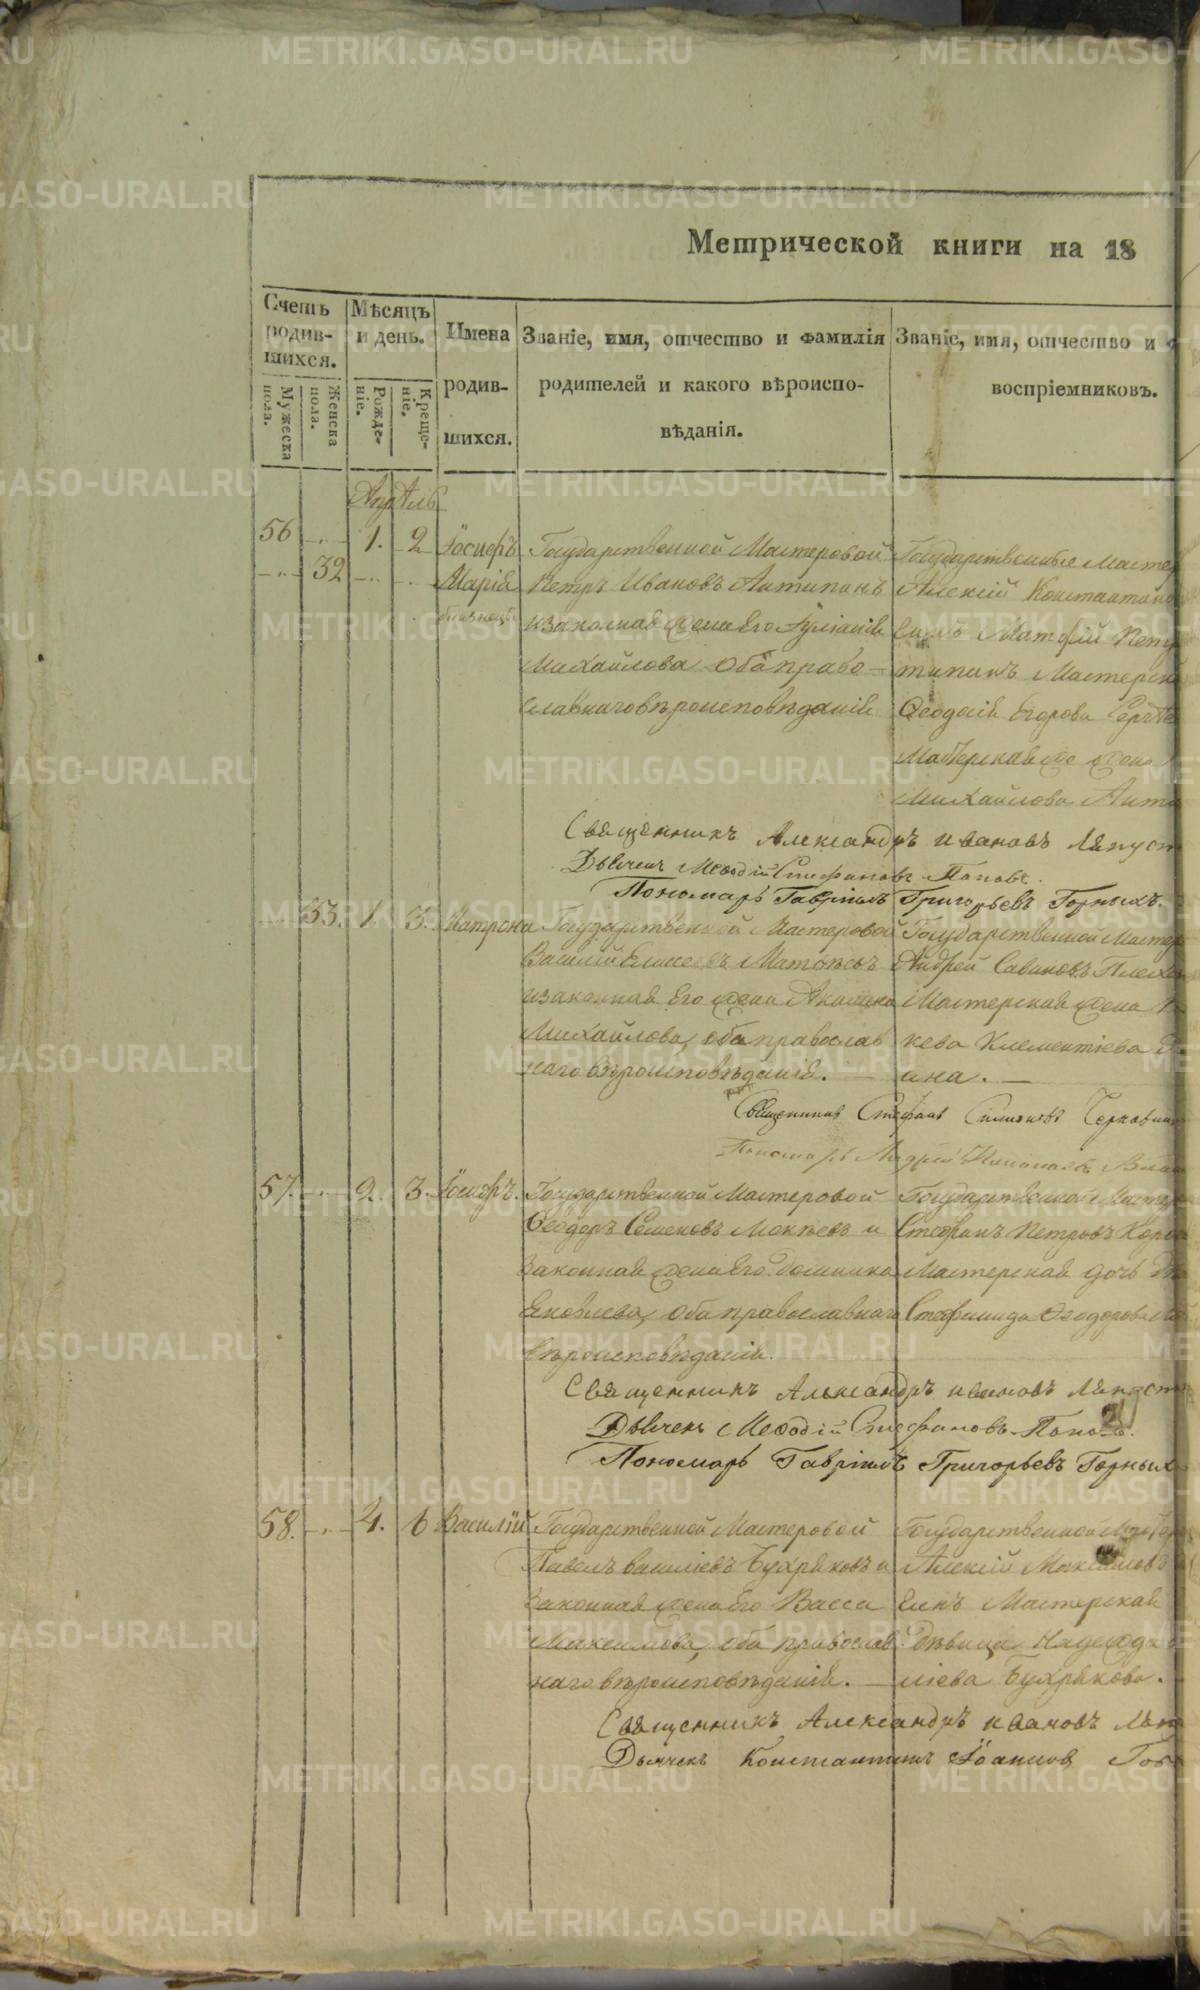 Метрической книги на 18
Счетъ родив-шихся.
Мужеска пола.
Женска пола.
Мѣсяцъ и день.
Рожде-ніе.
Креще-ніе.
Имена родив-шихся.
Званіе, имя, отчество и фамилія
родителей и какого вѣроиспо-
вѣданія.
Званіе, имя, отчество и
воспріемниковъ.
Апрѣль
56 1. 2 Іосифъ
32 Марія
близнецы
Государственной Мастеровой
Петръ Ивановъ Антипинъ
и законная жена его Іуліанія
Михайлова оба право-
славнаго вѣроисповѣданія
Государственные Мастер
Алексій Константинов
Матфій Петр
типинъ Мастерск
Ѳеодосія Егорова Сергѣе
Мастерская жена
Михайлова Анти
Священникъ Александръ Ивановъ Ляпуст
Дьячекъ Меѳодій Стефановъ Поповъ.
Пономарь Гавріилъ Григорьевъ Горныхъ.
33. 1. 3. Матрона
Государственной Мастеровой
Василій Елисеевъ Матвѣевъ
и законная его жена Акилина
Михайлова, оба православ
наго вѣроисповѣданія.
Государственной Мастер
Андрей Савиновъ Плеха
Мастерская жена
кева Клементіева
ина.
Священникъ Стефанъ Симоновъ Черкавин
Пономарь Андрей
57. 2. 3. Іосифъ.
Государственной Мастеровой
Ѳеодоръ Семеновъ Мокѣевъ и
законная жена его Домника
Яковлева, оба православнаго
вѣроисповѣданія.
Государственной Мастер
Стефанъ Петровъ
Мастерская дочь
Стефанида Ѳеодорова
Священникъ Александръ Ивановъ Ляпуст
Дьячекъ Меѳодій Стефановъ Поповъ.
Пономарь Гавріилъ Григорьевъ Горныхъ
58. 4. 6 Василій
Государственной Мастеровой
Павелъ Василіевъ Бухряковъ и
законная жена его Васса
Максимова, оба православ
наго вѣроисповѣданія.
Государственной Мастер
Алексій Максимовъ
Мастерская
Дѣвица Надежда
ліева Бухрякова.
Священникъ Александръ Ивановъ Ляп
Дьячекъ Константинъ Іоанновъ
METRIKI.GASO-URAL.RU